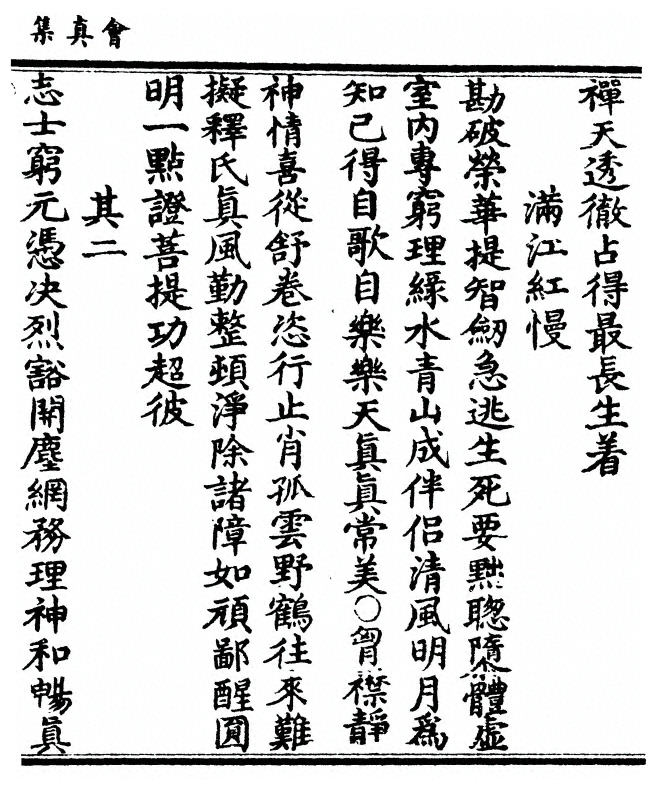 會真集
禪天透徹占得最長生着
滿江紅慢
勘破榮華提智劒急逃生死要黜聦隳體虛
室內專窮理緑水青山成伴侣清風明月為
知己得自歌自樂樂天眞眞常美○胷襟靜
神情喜從舒卷恣行止肖孤雲野鶴往來難
擬釋氏眞風勤整頓淨除諸障如頑鄙醒圓
明一點證菩提功超彼
其二
志士窮元憑决烈豁開塵網務理神和暢眞